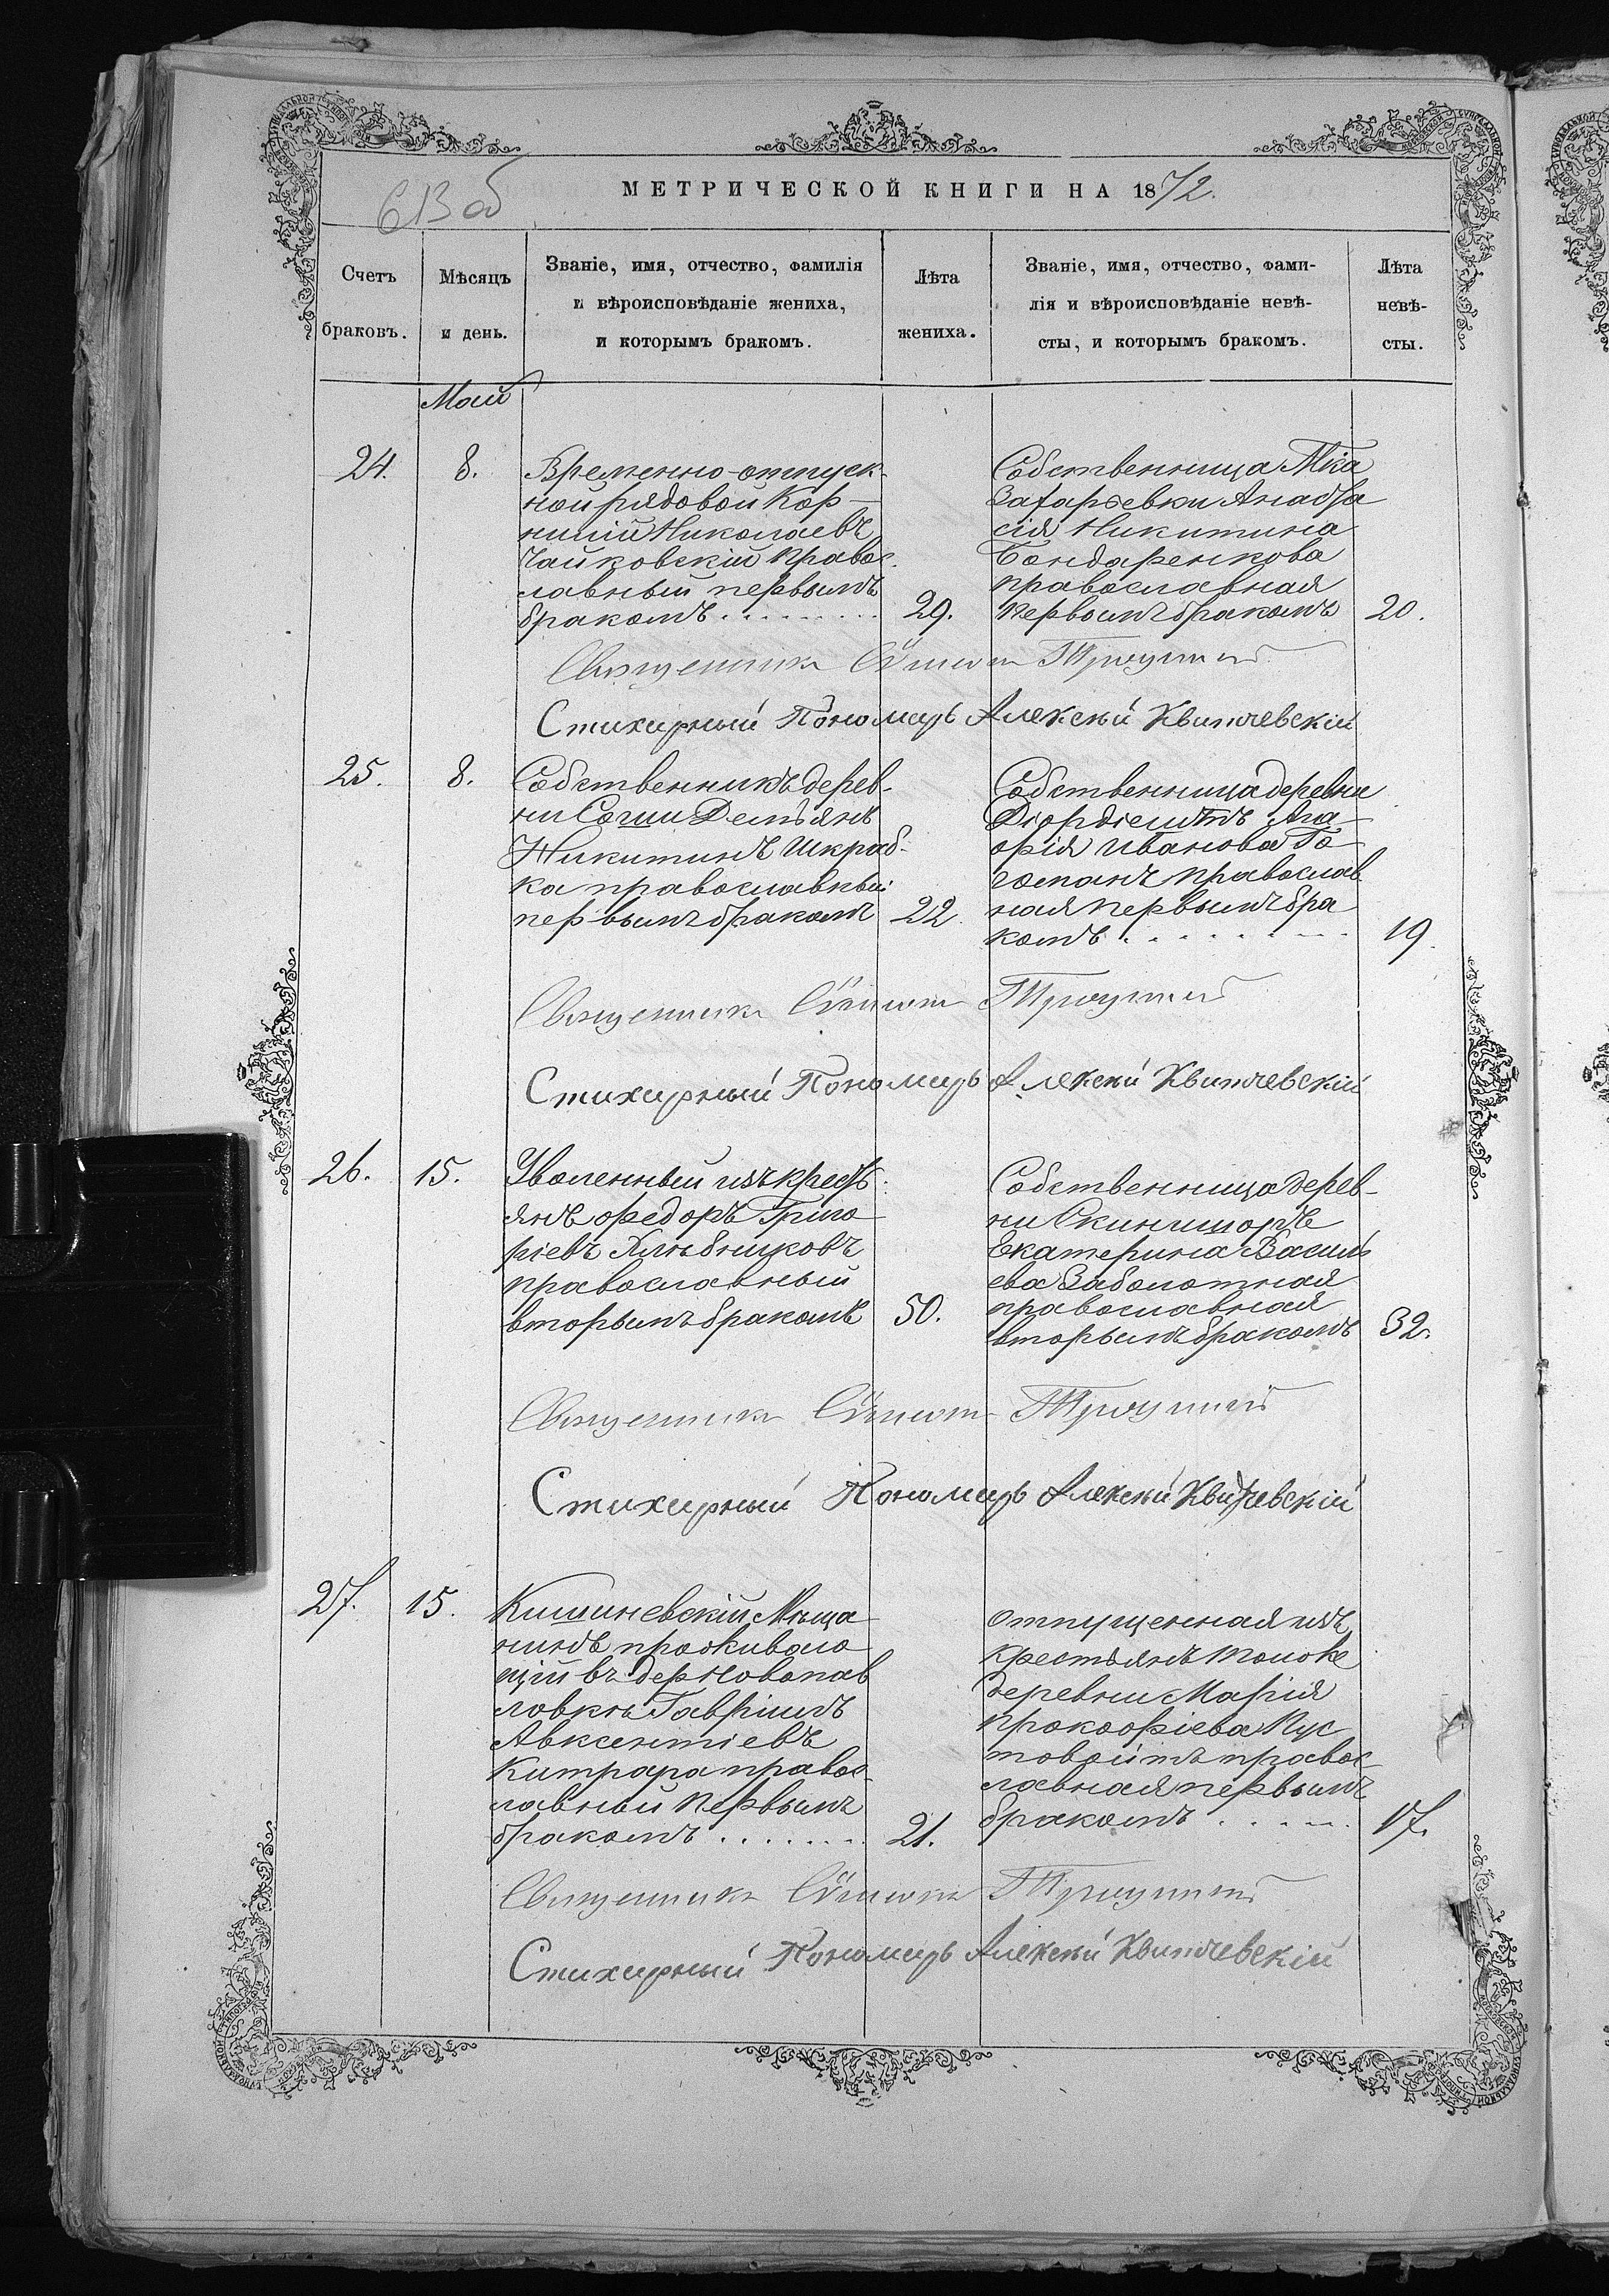 МЕТРИЧЕСКОЙ КНИГИ НА 1872.
613 об
Счетъ браковъ.
Мѣсяцъ и день.
Званіе, имя, отчество, фамилія
и вѣроисповѣданіе жениха,
и которымъ бракомъ.
Лѣта жениха.
Званіе, имя, отчество, фами-
лія и вѣроисповѣданіе невѣ-
сты, и которымъ бракомъ.
Лѣта невѣ-
сты.
Маій
24.
8.
Временно-отпуск-
ной рядовой Кор-
нилій Николаевъ
Чайковскій правос-
лавный первымъ
бракомъ
29.
Собственница
Захарьевки Анаста
сія Никитина
Бондаренкова
православная
первымъ бракомъ
20.
Священникъ Троуцкій
Стихирный Пономарь Алексѣй Квитчевскій
25.
8.
Собственникъ дерев-
ни Соши Демьянъ
Никитинъ Шкраб-
ка православный
первымъ бракомъ
22
Собственница деревни
Ага-
фія Иванова Го-
гоманъ православ
ная первымъ бра
комъ
19.
Священникъ Троуцкій
Стихирный Пономарь Алексѣй Квитчевскій
26.
15.
Уволенный изъ крест
янъ Федоръ Григо
ріевъ Хлѣбниковъ
православный
вторымъ бракомъ
50.
Собственница дерев-
ни
Екатерина Василь
ева Заболотная
православная
вторымъ бракомъ
32.
Священникъ Троуцкій
Стихирный Пономарь Алексѣй Квитчевскій
27.
15.
Кишиневскій Мѣща
нинъ проживаю
щій въ дер Новопав
ловкѣ Гавріилъ
Авксентіевъ
Китрара правос-
лавный первымъ
бракомъ
21.
отпущенная изъ
крестьянъ тойже
деревни Марія
Прокофіева Пус
товойтъ правос-
лавная первымъ
бракомъ
17.
Священникъ Троуцкій
Стихирный Пономарь Алексѣй Квитчевскій